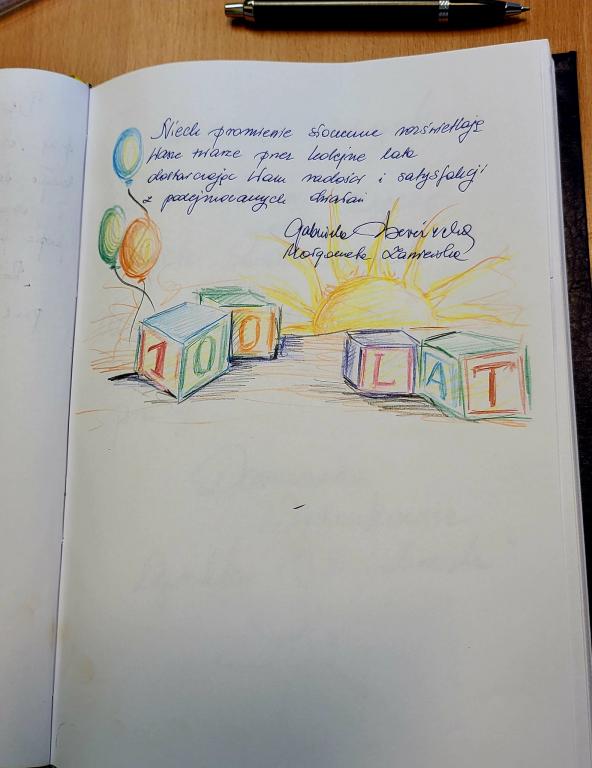 Niech promienie słoneczne rozświetlają
Wasze twarze przez kolejne lata
dostarczając Wam radości i satysfakcji
z podejmowanych działań
Gabriela
Małgorzata
100
LAT